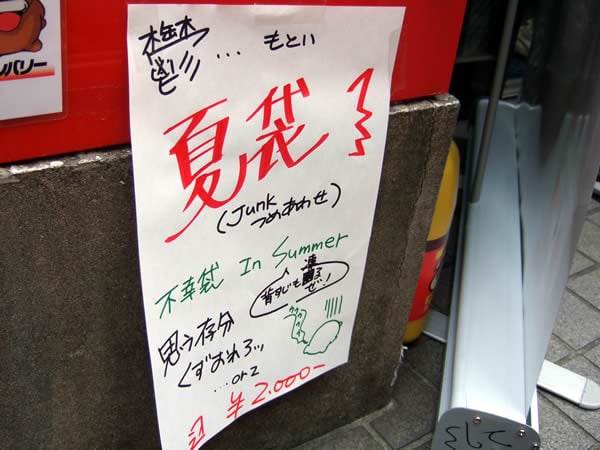 鬱… もとい
夏袋
(Junk
つめあわせ)
不幸袋 In Summer
背すじも凍るぜ!
思う存分
くずおれろッ
…orz
¥2.000-
バリー
そして